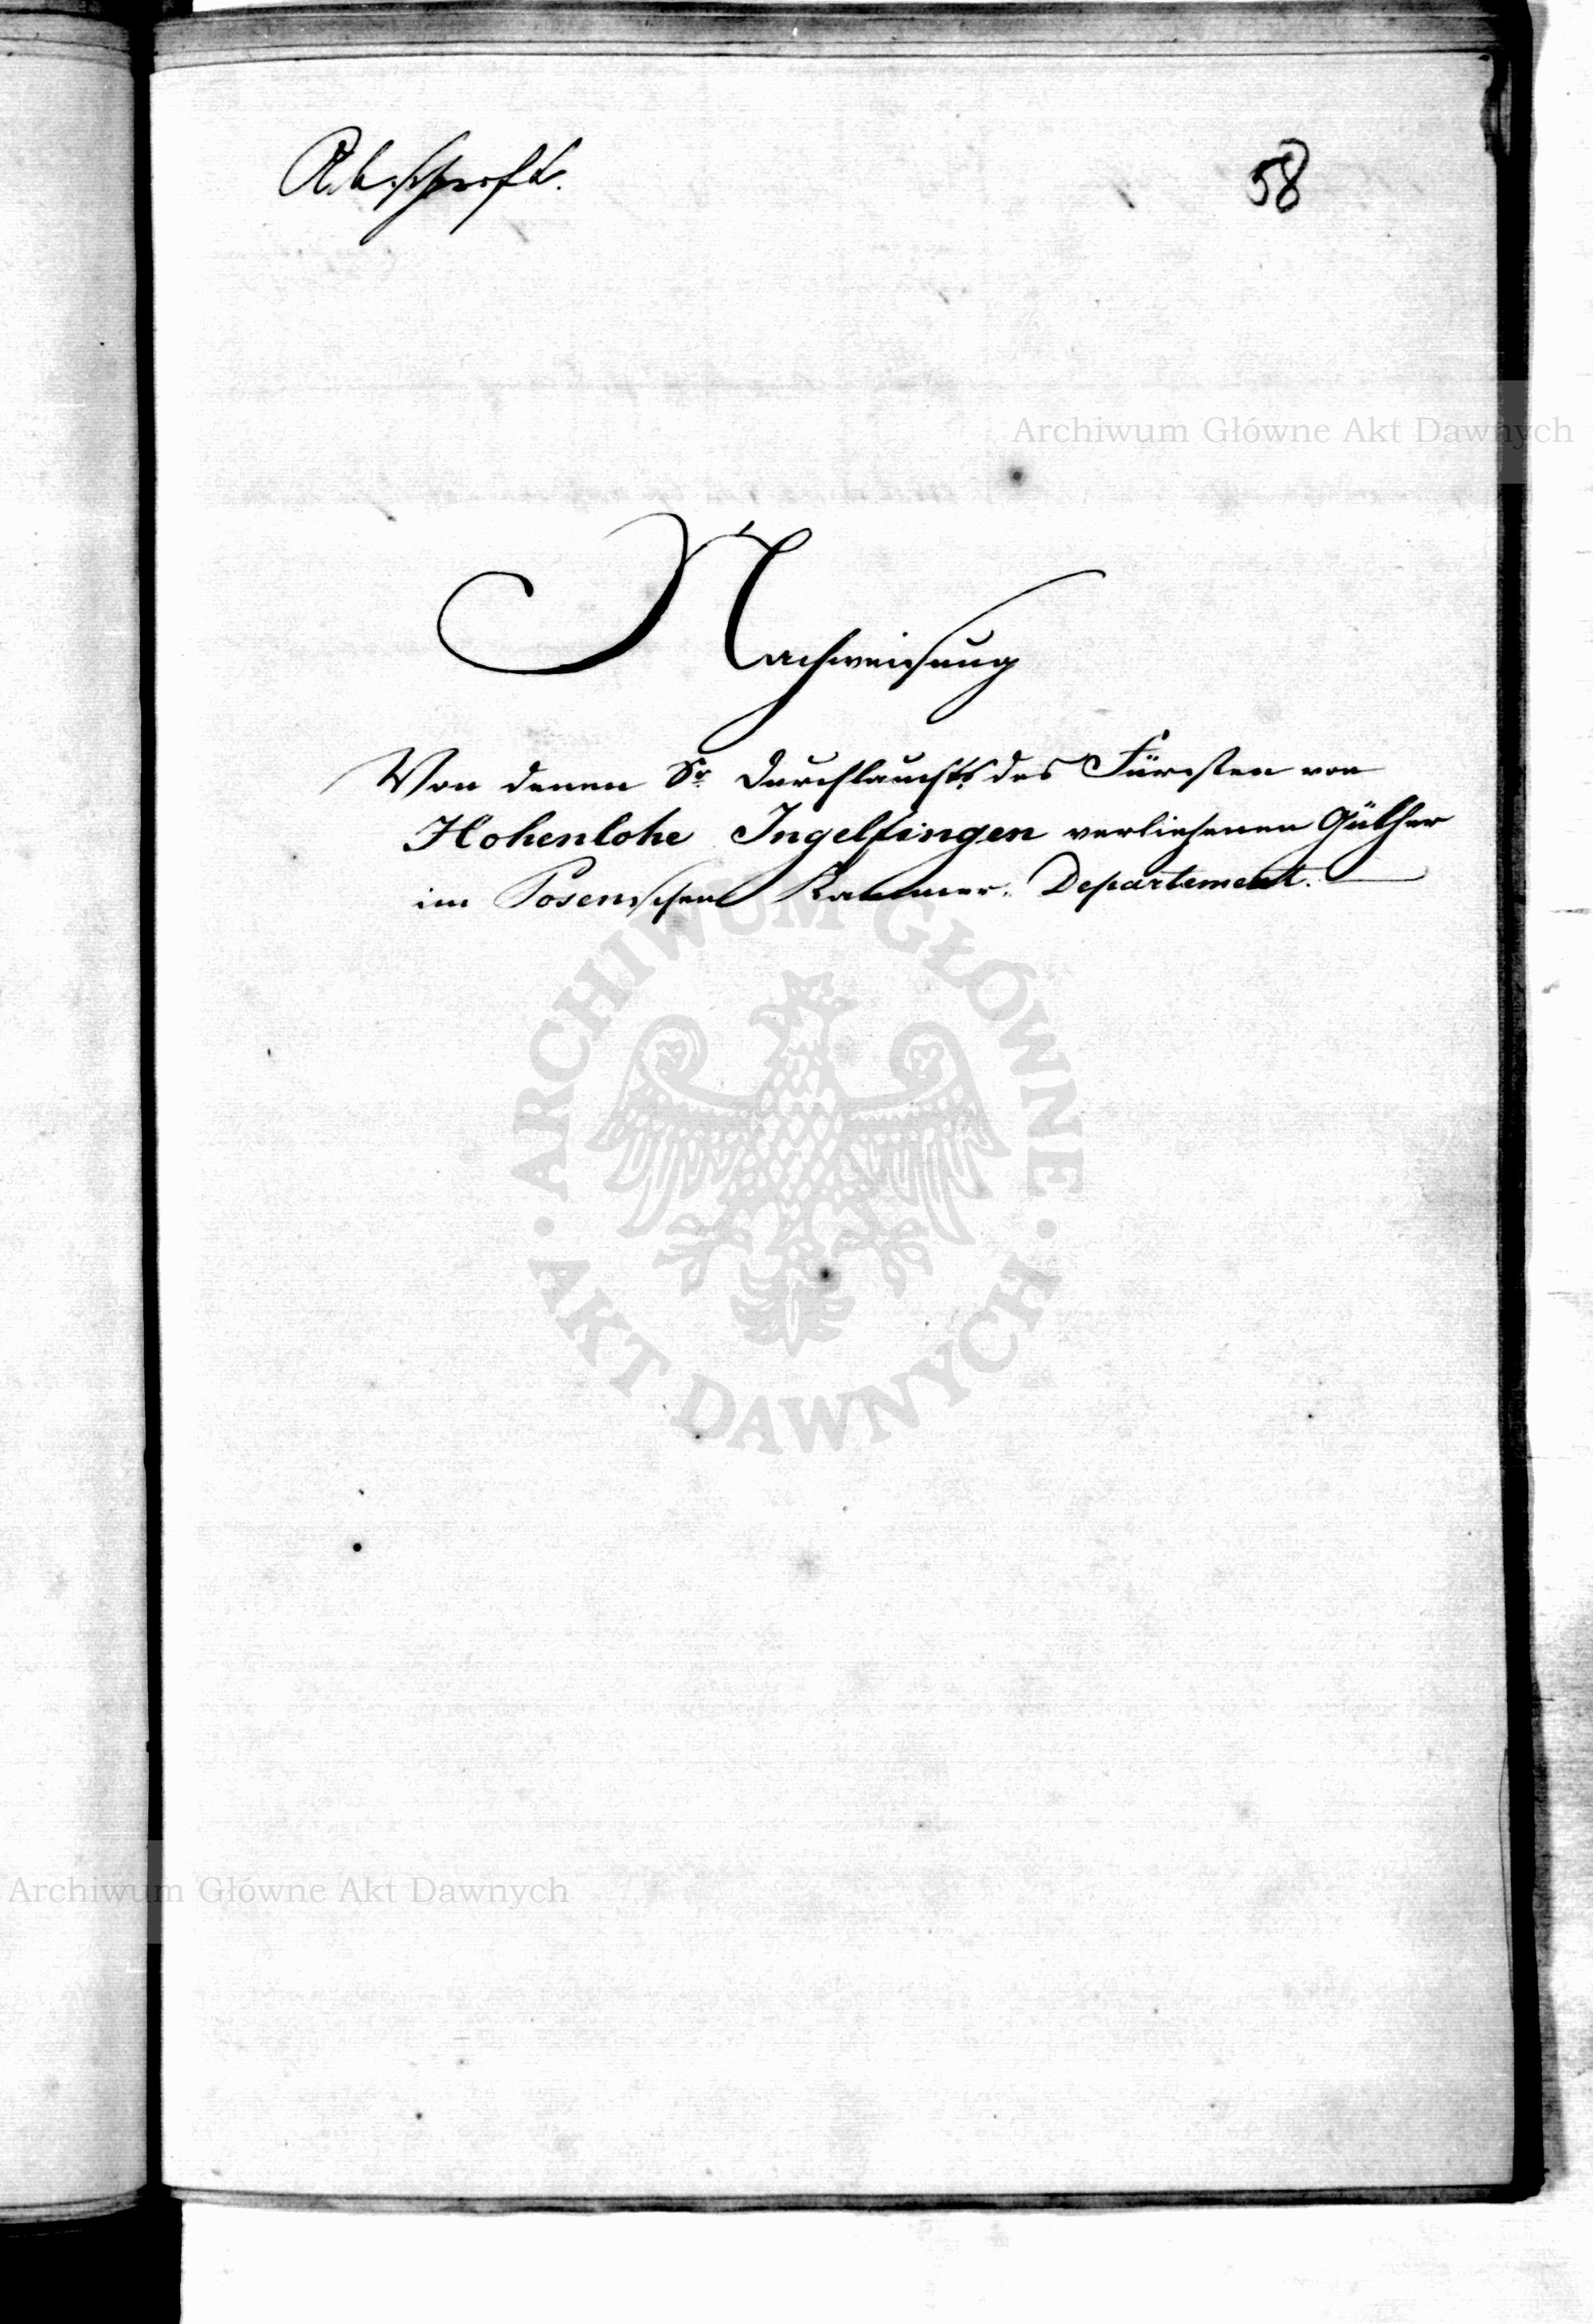 Abschrift.
58
Archiwum Główne Akt Dawnych
Nachweisung
Von denen Sr. Durchlaucht des Fürsten von
Hohenlohe Ingelfingen verliehenen Güther
im Posenschen Kammer-Departement.
ARCHIWUM GŁÓWNE
AKT DAWNYCH
Archiwum Główne Akt Dawnych